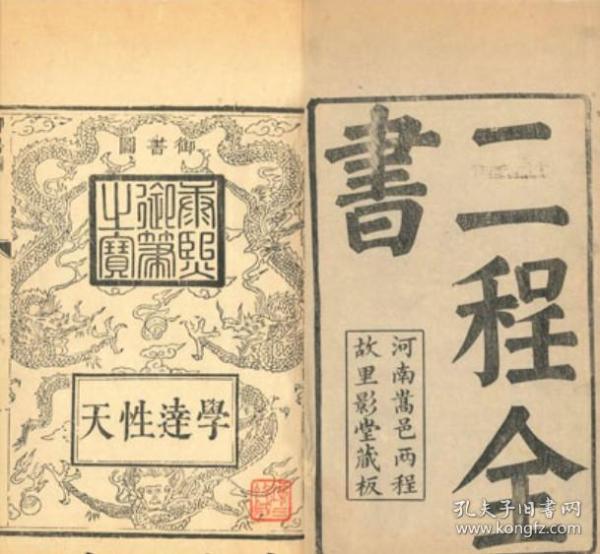 二程全
書
河南嵩邑两程
故里影堂藏板
御書圖
康熙
御筆
之寶
學達性天
孔夫子旧書网
www.kongfz.com